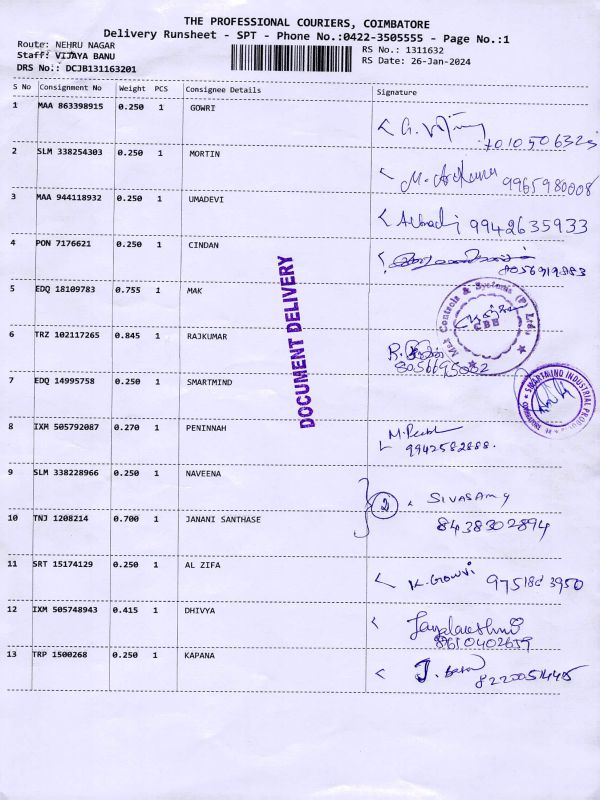 THE PROFESSIONAL COURIERS, COIMBATORE
Delivery Runsheet - SPT - Phone No.:0422-3505555 - Page No.:1
Route: NEHRU NAGAR RS No.: 1311632
Staff: VIJAYA BANU RS Date: 26-Jan-2024
DRS No.: DCJB131163201
S No Consignment No Weight PCS Consignee Details Signature
1 MAA 863398915 0.250 1 GOWRI
2 SLM 338254303 0.250 1 MORTIN
9965980008
3 MAA 944118932 0.250 1 UMADEVI
9942635933
4 PON 7176621 0.250 1 CINDAN
DOCUMENT DELIVERY
5 EDQ 18109783 0.755 1 MAK
CBE
6 TRZ 102117265 0.845 1 RAJKUMAR
7 EDQ 14995758 0.250 1 SMARTMIND
SMARTMIND INDUSTRIAL
8 IXM 505792087 0.270 1 PENINNAH
9942582888.
9 SLM 338228966 0.250 1 NAVEENA
2 SIVASAMY
10 TNJ 1208214 0.700 1 JANANI SANTHASE
8438302894
11 SRT 15174129 0.250 1 AL ZIFA
K. Gowri
12 IXM 505748943 0.415 1 DHIVYA
8610402659
13 TRP 1500268 0.250 1 KAPANA